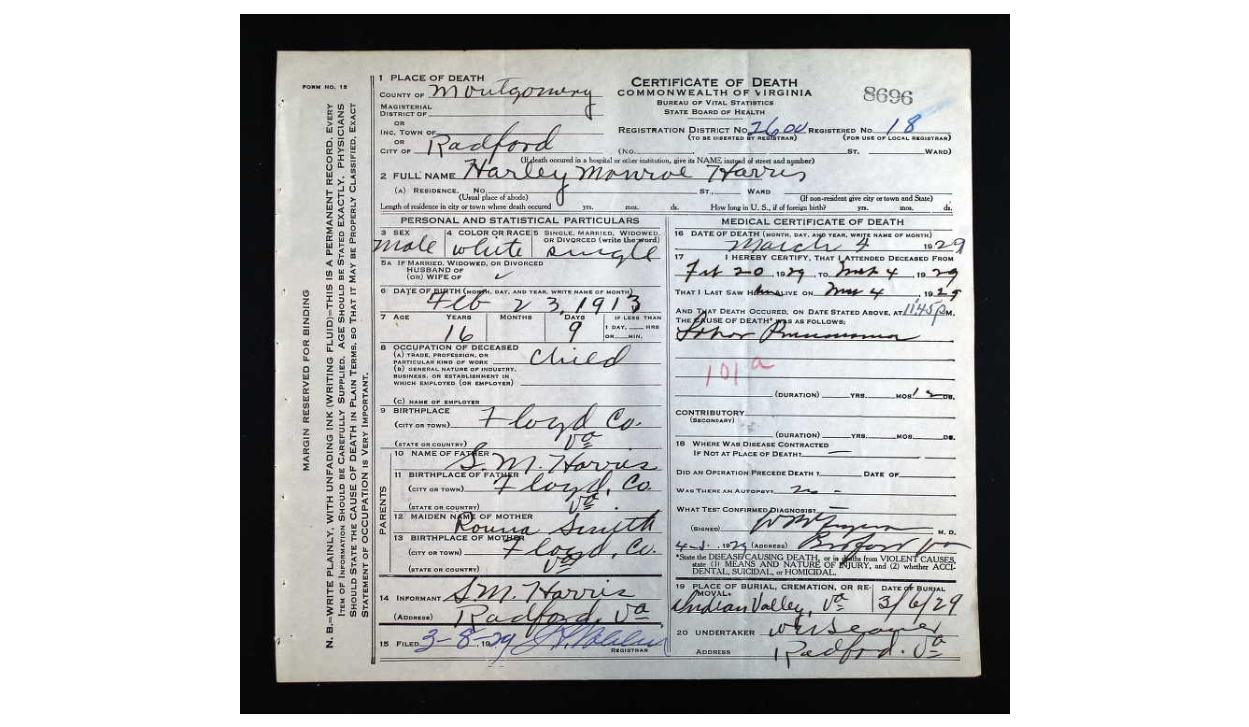 FORM NO. 15
MARGIN RESERVED FOR BINDING
N. B.—WRITE PLAINLY, WITH UNFADING INK (WRITING FLUID)—THIS IS A PERMANENT RECORD. EVERY
ITEM OF INFORMATION SHOULD BE CAREFULLY SUPPLIED. AGE SHOULD BE STATED EXACTLY. PHYSICIANS
SHOULD STATE THE CAUSE OF DEATH IN PLAIN TERMS, SO THAT IT MAY BE PROPERLY CLASSIFIED. EXACT
STATEMENT OF OCCUPATION IS VERY IMPORTANT.
CERTIFICATE OF DEATH
COMMONWEALTH OF VIRGINIA
BUREAU OF VITAL STATISTICS
STATE BOARD OF HEALTH
8696
1 PLACE OF DEATH
COUNTY OF Montgomery
MAGISTERIAL
DISTRICT OF
OR
INC. TOWN OF
OR
CITY OF Radford
REGISTRATION DISTRICT NO. 2600 REGISTERED NO. 18
(TO BE INSERTED BY REGISTRAR) (FOR USE OF LOCAL REGISTRAR)
(NO. ST. WARD)
(If death occured in a hospital or other institution, give its NAME instead of street and number)
2 FULL NAME Harley Monroe Harris
(A) RESIDENCE. NO. ST., WARD
(Usual place of abode) (If non-resident give city or town and State)
Length of residence in city or town where death occured yrs. mos. ds. How long in U. S., if of foreign birth? yrs. mos. ds.
PERSONAL AND STATISTICAL PARTICULARS
3 SEX male
4 COLOR OR RACE white
5 SINGLE, MARRIED, WIDOWED, OR DIVORCED (write the word) single
5A IF MARRIED, WIDOWED, OR DIVORCED
HUSBAND OF
(OR) WIFE OF
6 DATE OF BIRTH (MONTH, DAY, AND YEAR, WRITE NAME OF MONTH)
Feb 23, 1913
7 AGE YEARS MONTHS DAYS IF LESS THAN
1 DAY, HRS
OR MIN.
16 9
8 OCCUPATION OF DECEASED
(A) TRADE, PROFESSION, OR
PARTICULAR KIND OF WORK child
(B) GENERAL NATURE OF INDUSTRY,
BUSINESS, OR ESTABLISHMENT IN
WHICH EMPLOYED (OR EMPLOYER)
(C) NAME OF EMPLOYER
9 BIRTHPLACE
(CITY OR TOWN) Floyd Co.
(STATE OR COUNTRY) Va
PARENTS
10 NAME OF FATHER S. M. Harris
11 BIRTHPLACE OF FATHER
(CITY OR TOWN) Floyd, Co.
(STATE OR COUNTRY) Va
12 MAIDEN NAME OF MOTHER Smith
13 BIRTHPLACE OF MOTHER
(CITY OR TOWN) Floyd, Co.
(STATE OR COUNTRY) Va
14 INFORMANT S.M. Harris
(ADDRESS) Radford, Va
15 FILED 3-8-1929
REGISTRAR
MEDICAL CERTIFICATE OF DEATH
16 DATE OF DEATH (MONTH, DAY, AND YEAR, WRITE NAME OF MONTH)
March 4 1929
17 I HEREBY CERTIFY, THAT I ATTENDED DECEASED FROM
Feb 20, 1929, TO Mch 4, 1929
THAT I LAST SAW HIM ALIVE ON 4, 1929
AND THAT DEATH OCCURED, ON DATE STATED ABOVE, AT 11:45 P M.
THE CAUSE OF DEATH* WAS AS FOLLOWS:
Lobar Pneumonia
101 a
(DURATION) YRS. MOS. 12 DS.
CONTRIBUTORY
(SECONDARY)
(DURATION) YRS. MOS. DS.
18 WHERE WAS DISEASE CONTRACTED
IF NOT AT PLACE OF DEATH? —
DID AN OPERATION PRECEDE DEATH? DATE OF
WAS THERE AN AUTOPSY? no -
WHAT TEST CONFIRMED DIAGNOSIS? —
(SIGNED) M. D.
1929 (ADDRESS) Radford Va
*State the DISEASE CAUSING DEATH, or in deaths from VIOLENT CAUSES,
state (1) MEANS AND NATURE OF INJURY, and (2) whether ACCI-
DENTAL, SUICIDAL, or HOMICIDAL.
19 PLACE OF BURIAL, CREMATION, OR RE-
MOVAL. DATE OF BURIAL
Indian Valley, Va 3/6/29
20 UNDERTAKER
ADDRESS Radford. Va